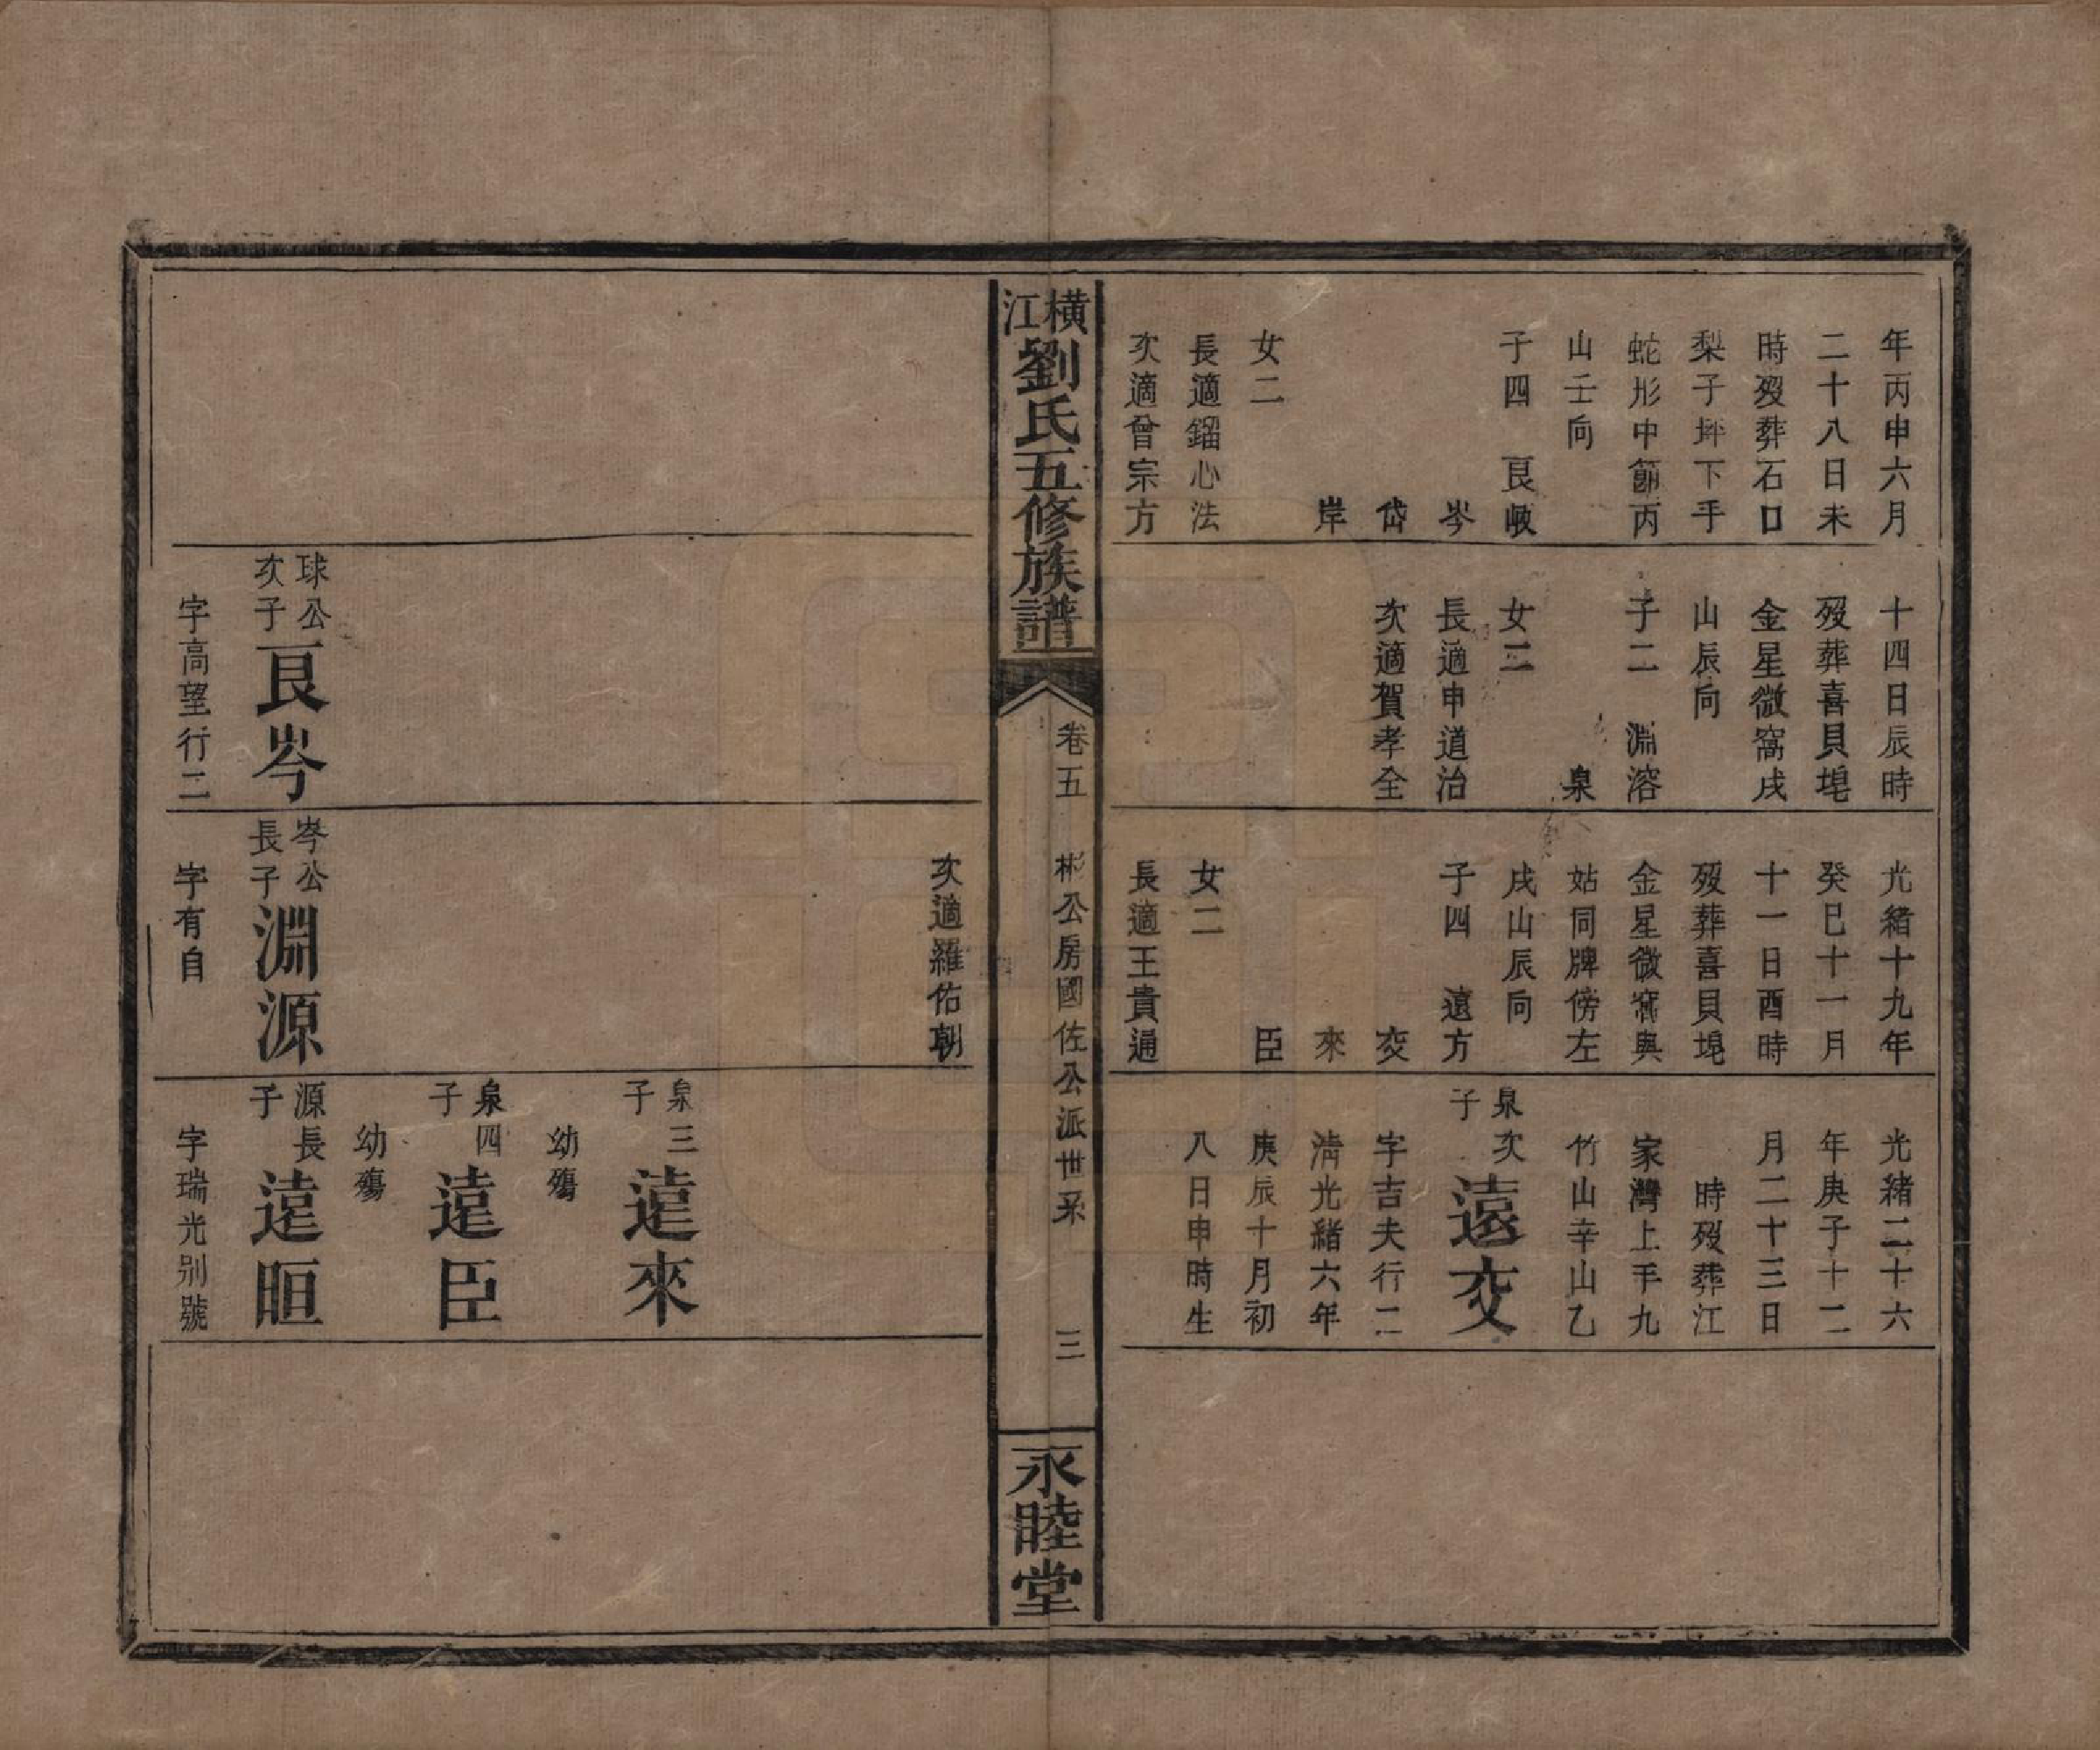 年丙申六月
二十八日未
時歿葬石口
梨子坪下手
蛇形中節丙
山壬向
子四　艮峧
岑
岱
岸
女二
長適鎦心法
次適曾宗方
十四日辰時
歿葬喜貝塊
金星微窩戌
山辰向
子二　淵溶
泉
女二
長適申道治
次適賀孝全
光緒十九年
癸巳十一月
十一日酉時
歿葬喜貝塊
金星微窩與
姑同牌傍左
戌山辰向
子四　遠方
交
來
臣
女二
長適王貴通
光緒二十六
年庚子十二
月二十三日
時歿葬江
家灣上手九
竹山辛山乙
泉次子遠交
字吉夫行二
淸光緒六年
庚辰十月初
八日申時生
橫江劉氏五修族譜
卷五　彬公房國佐公派世系　三
永睦堂
球公次子艮岑
字高望行二
次適羅佑朝
岑公長子淵源
字有自
泉三子遠來
幼殤
泉四子遠臣
幼殤
源長子遠晅
字瑞光別號